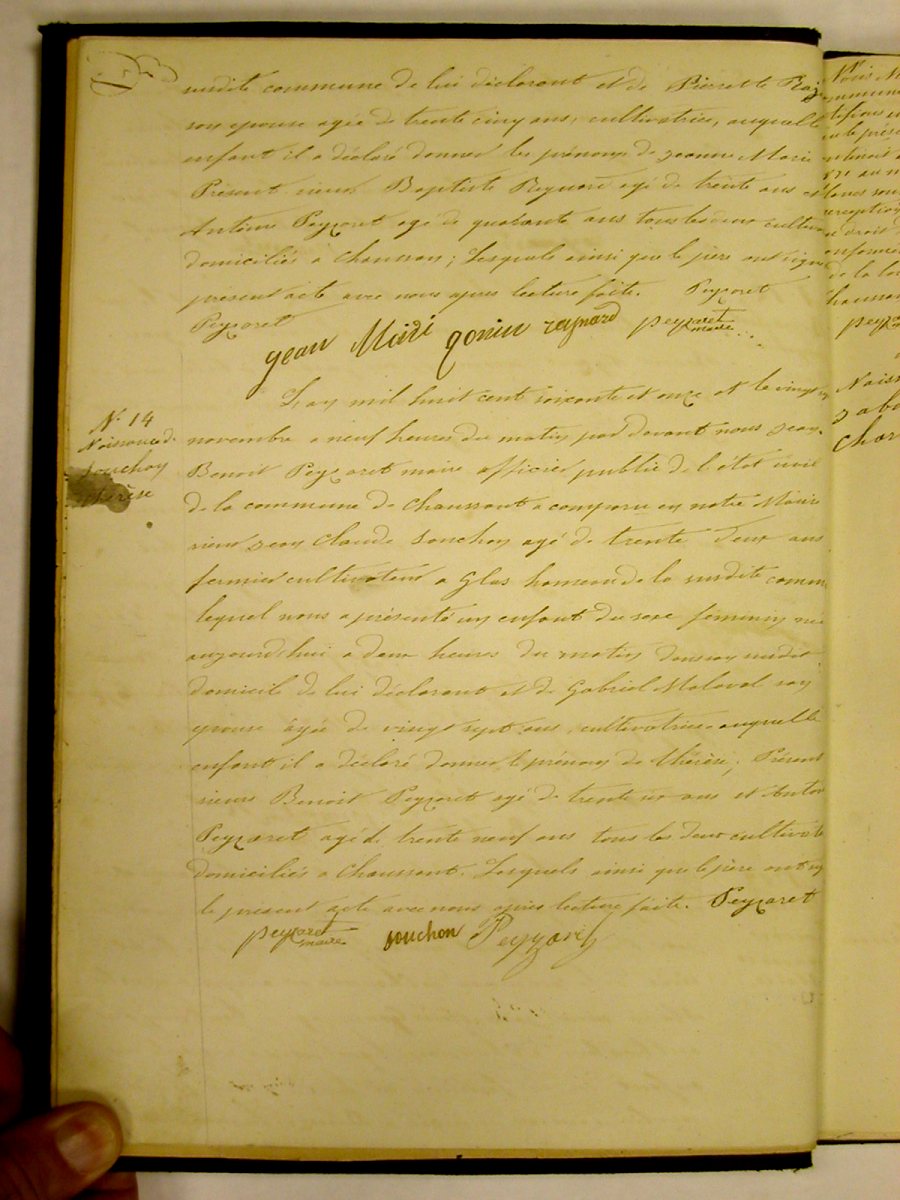 susdite commune de lui déclarant et de Pierrette
son epouse agée de trente cinq ans, cultivatrice, auquelle
enfant il a déclaré donner les prénoms de Jeanne Marie
Présent sieurs Baptiste Reynard agé de trente ans et
Antoine Peyzaret agé de quarante ans tous les deux cultiva
domiciliés a Chaussan; Lesquels ainsi que le père ont signé
présent acte avec nous apres lecture faite. Peyzaret
Peyzaret
jean Mari gonin reynard peyzaret maire
N. 14
Naissance de
Souchon
thérèse
L'an mil huit cent soixante et onze et le vingt
novembre a neuf heures du matin par devant nous Jean
Benoit Peyzaret maire officier public de l'état civil
de la commune de Chaussant a comparu en notre Mairie
sieur Jean Claude Souchon agé de trente deux ans
fermier cultivateur a Glas hameau de la susdite commu
lequel nous a présenté un enfant du sexe féminin né
aujourd'hui a deux heures du matin dans son susdit
domicile de lui déclarant et de Gabriel Malaval son
epouse agée de vingt sept ans, cultivatrice auquelle
enfant il a déclaré donner le prénom de thérèse; Présent
sieurs Benoit Peyzaret agé de trente six ans et Antoi
Peyzaret agé de trente neuf ans tous les deux cultivate
domiciliés a Chaussant. Lesquels ainsi que le père ont
le présent acte avec nous après lecture faite. Peyzaret
peyzaret maire souchon Peyzaret